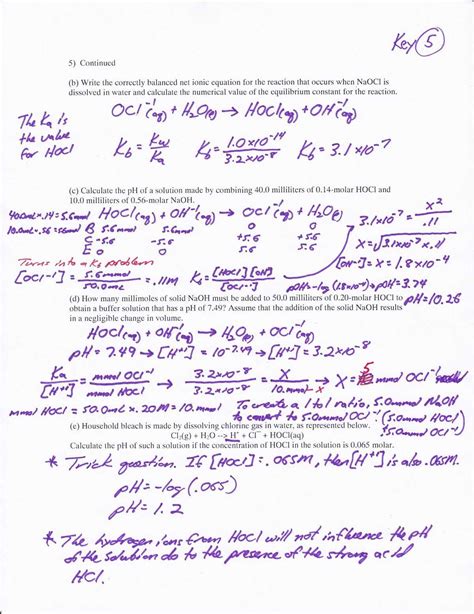 Key 5
5) Continued
(b) Write the correctly balanced net ionic equation for the reaction that occurs when NaOCl is
dissolved in water and calculate the numerical value of the equilibrium constant for the reaction.
OCl⁻¹(aq) + H₂O(l) → HOCl(aq) + OH⁻¹(aq)
The Ka is
the value
for HOCl
Kb = Kw/Ka Kb = 1.0x10⁻¹⁴/3.2x10⁻⁸ Kb = 3.1x10⁻⁷
(c) Calculate the pH of a solution made by combining 40.0 milliliters of 0.14-molar HOCl and
10.0 milliliters of 0.56-molar NaOH.
40.0mL x .14 = 5.6mmol HOCl(aq) + OH⁻¹(aq) → OCl⁻¹(aq) + H₂O(l) 3.1x10⁻⁷ = x²/.11
10.0mL x .56 = 5.6mmol B 5.6mmol 5.6mmol 0 0
C -5.6 -5.6 +5.6 +5.6 x = √3.1x10⁻⁷ x .11
E 0 0 5.6 5.6
Turns into a Kb problem [OH⁻¹] = x = 1.8x10⁻⁴
[OCl⁻¹] = 5.6mmol/50.0mL = .11M Kb = [HOCl][OH]/[OCl⁻¹] pOH = -log(1.8x10⁻⁴) → pOH = 3.74
pH = 10.26
(d) How many millimoles of solid NaOH must be added to 50.0 milliliters of 0.20-molar HOCl to
obtain a buffer solution that has a pH of 7.49? Assume that the addition of the solid NaOH results
in a negligible change in volume.
HOCl(aq) + OH⁻¹(aq) → H₂O(l) + OCl⁻¹(aq)
pH = 7.49 → [H⁺¹] = 10⁻⁷·⁴⁹ → [H⁺¹] = 3.2x10⁻⁸
Ka/[H⁺¹] = mmol OCl⁻¹/mmol HOCl → 3.2x10⁻⁸/3.2x10⁻⁸ = x/10.mmol-x → x = 5 mmol OCl⁻¹ needed
mmol HOCl = 50.0mL x .20M = 10.mmol To create a 1 to 1 ratio, 5.0mmol NaOH
to convert to 5.0mmol OCl⁻¹ (5.0mmol HOCl)
(e) Household bleach is made by dissolving chlorine gas in water, as represented below.
Cl₂(g) + H₂O → H⁺ + Cl⁻ + HOCl(aq)
Calculate the pH of such a solution if the concentration of HOCl in the solution is 0.065 molar.
* Trick question. If [HOCl] = .065M, then [H⁺] is also .065M.
pH = -log(.065)
pH = 1.2
* The hydrogen ions from HOCl will not influence the pH
of the solution do to the presence of the strong acid
HCl.